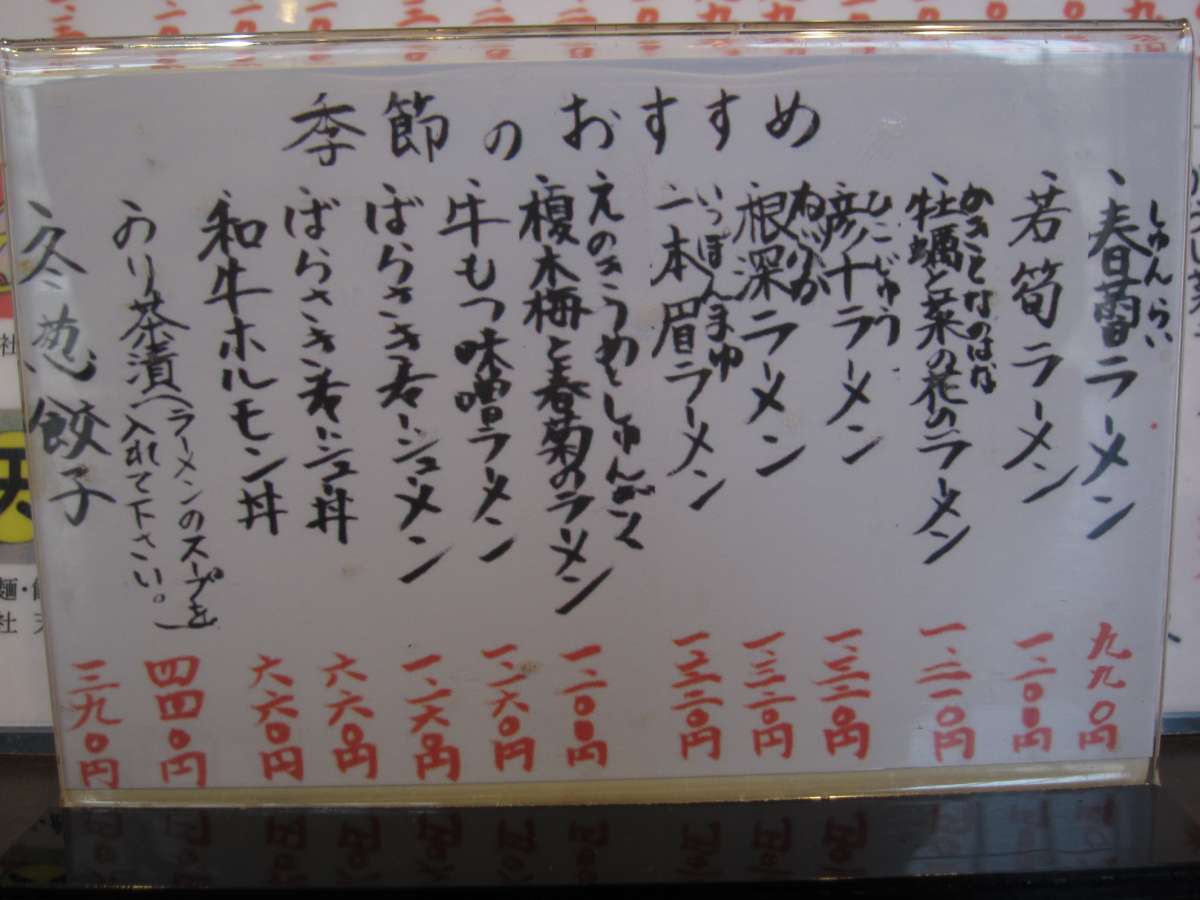 季節のおすすめ
しゅんらい
、春蕾ラーメン 九九〇円
、若筍ラーメン 一、二〇〇円
かきとなのはな
、牡蠣と菜の花のラーメン 一、二一〇円
ひこじゅう
、彦十ラーメン 一、三二〇円
ねぶか
、根深ラーメン 一、三二〇円
いっぽんまゆ
、一本眉ラーメン
えのきうめとしゅんぎく
、榎木梅と春菊のラーメン
、牛もつ味噌ラーメン 一、一六〇円
、ばらさきチャーシューメン 一、一六〇円
、ばらさきチャーシュー丼 六六〇円
、和牛ホルモン丼 六六〇円
、のり茶漬(ラーメンのスープを入れて下さい。) 四四〇円
、冬葱餃子